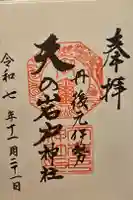 奉拝
丹後元伊勢
天の岩戸神社
令和七年十一月二十一日